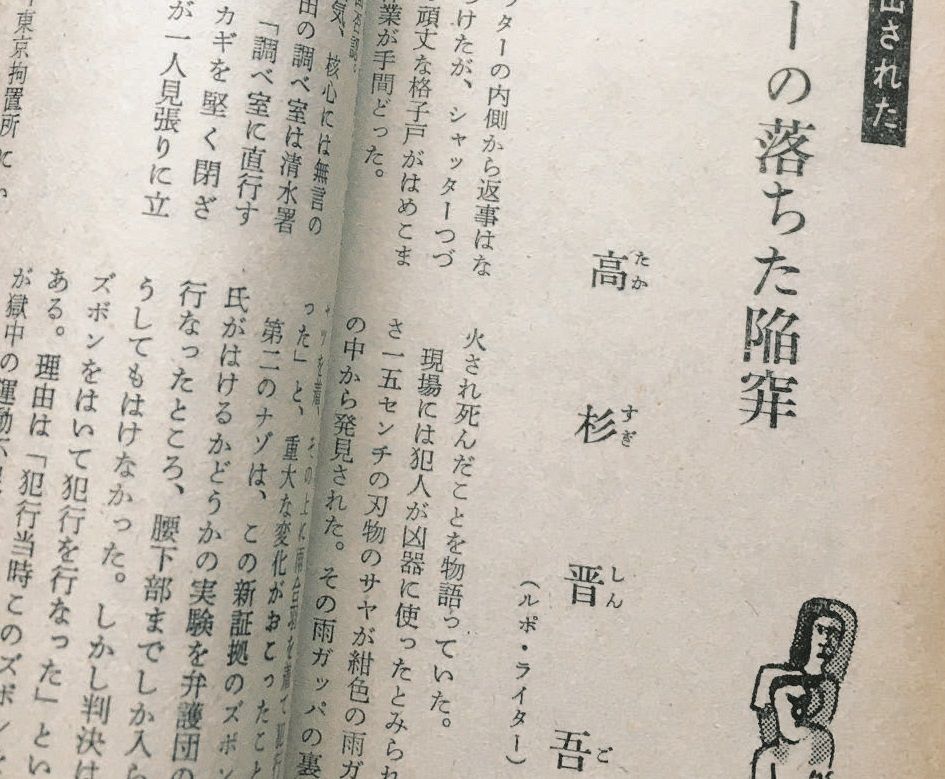 された
ーの落ちた陥穽
高杉晋吾
たかすぎしんご
(ルポ・ライター)
ッターの内側から返事はな
つけたが、シャッターつづ
の頑丈な格子戸がはめこま
業が手間どった。
火され死んだことを物語っていた。
現場には犯人が凶器に使ったとみられ
さ一五センチの刃物のサヤが紺色の雨ガ
の中から発見された。その雨ガッパの裏
気、核心には無言の
田の調べ室は清水署
「調べ室に直行す
カギを堅く閉ざ
が一人見張りに立
東京拘置所
った」と、重大な変化がおこったこと
第二のナゾは、この新証拠のズボン
氏がはけるかどうかの実験を弁護団の
行なったところ、腰下部までしか入ら
うしてもはけなかった。しかし判決は
ズボンをはいて犯行を行なった」とい
ある。理由は「犯行当時このズボン
が獄中の運動不